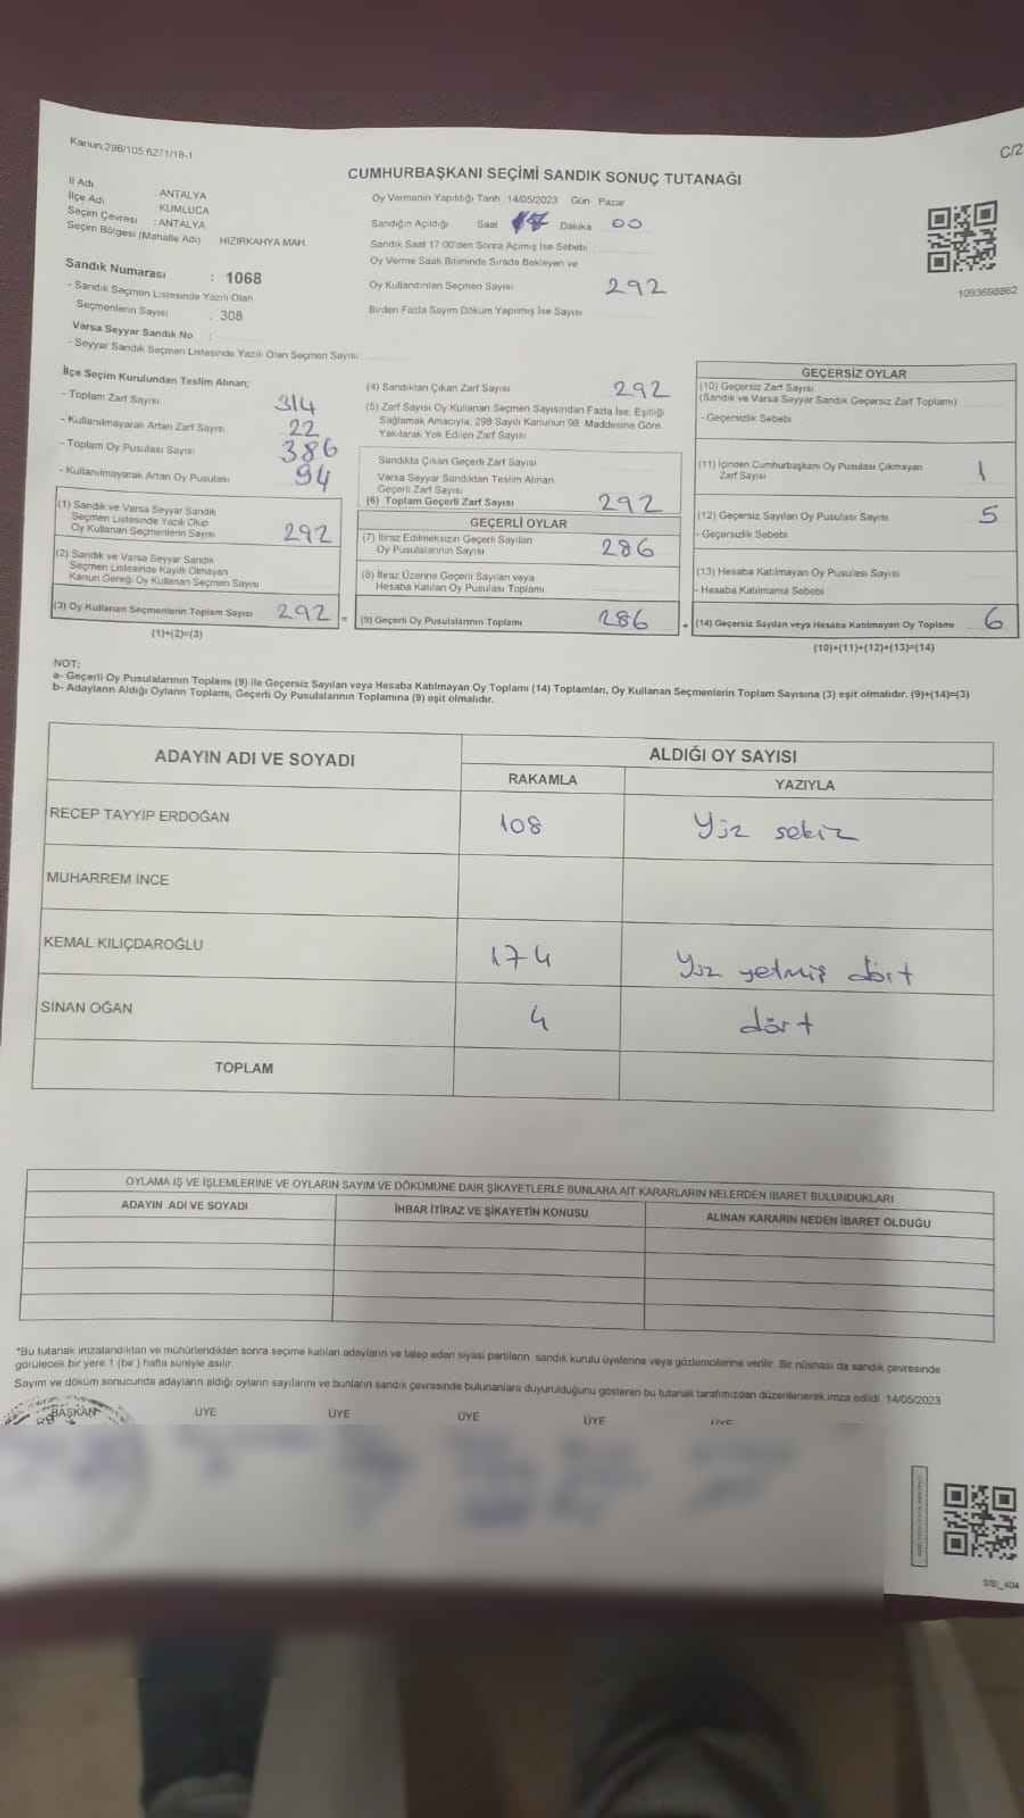 Kanun:298/105 6271/18-1
C/2
CUMHURBAŞKANI SEÇİMİ SANDIK SONUÇ TUTANAĞI
İl Adı : ANTALYA
İlçe Adı : KUMLUCA
Seçim Çevresi : ANTALYA
Seçim Bölgesi (Mahalle Adı) HIZIRKAHYA MAH.
Oy Vermenin Yapıldığı Tarih 14/05/2023 Gün Pazar
Sandığın Açıldığı Saat 17 Dakika 00
Sandık Saat 17:00'den Sonra Açılmış İse Sebebi
Oy Verme Saati Bitiminde Sırada Bekleyen ve
Oy Kullandırılan Seçmen Sayısı 292
Birden Fazla Sayım Döküm Yapılmış İse Sayısı
1093698862
Sandık Numarası : 1068
- Sandık Seçmen Listesinde Yazılı Olan
Seçmenlerin Sayısı : 308
Varsa Seyyar Sandık No :
- Seyyar Sandık Seçmen Listesinde Yazılı Olan Seçmen Sayısı
İlçe Seçim Kurulundan Teslim Alınan;
- Toplam Zarf Sayısı 314
- Kullanılmayarak Artan Zarf Sayısı 22
- Toplam Oy Pusulası Sayısı 386
- Kullanılmayarak Artan Oy Pusulası 94
(1) Sandık ve Varsa Seyyar Sandık
Seçmen Listesinde Yazılı Olup
Oy Kullanan Seçmenlerin Sayısı 292
(2) Sandık ve Varsa Seyyar Sandık
Seçmen Listesinde Kayıtlı Olmayan
Kanun Gereği Oy Kullanan Seçmen Sayısı
(3) Oy Kullanan Seçmenlerin Toplam Sayısı 292 =
(1)+(2)=(3)
(4) Sandıktan Çıkan Zarf Sayısı 292
(5) Zarf Sayısı Oy Kullanan Seçmen Sayısından Fazla İse; Eşitliği
Sağlamak Amacıyla, 298 Sayılı Kanunun 98. Maddesine Göre
Yakılarak Yok Edilen Zarf Sayısı
Sandıkta Çıkan Geçerli Zarf Sayısı
Varsa Seyyar Sandıktan Teslim Alınan
Geçerli Zarf Sayısı
(6) Toplam Geçerli Zarf Sayısı 292
GEÇERLİ OYLAR
(7) İtiraz Edilmeksizin Geçerli Sayılan
Oy Pusulalarının Sayısı 286
(8) İtiraz Üzerine Geçerli Sayılan veya
Hesaba Katılan Oy Pusulası Toplamı
(9) Geçerli Oy Pusulalarının Toplamı 286 +
GEÇERSİZ OYLAR
(10) Geçersiz Zarf Sayısı
(Sandık ve Varsa Seyyar Sandık Geçersiz Zarf Toplamı)
- Geçersizlik Sebebi
(11) İçinden Cumhurbaşkanı Oy Pusulası Çıkmayan
Zarf Sayısı 1
(12) Geçersiz Sayılan Oy Pusulası Sayısı 5
- Geçersizlik Sebebi
(13) Hesaba Katılmayan Oy Pusulası Sayısı
- Hesaba Katılmama Sebebi
(14) Geçersiz Sayılan veya Hesaba Katılmayan Oy Toplamı 6
(10)+(11)+(12)+(13)=(14)
NOT:
a- Geçerli Oy Pusulalarının Toplamı (9) ile Geçersiz Sayılan veya Hesaba Katılmayan Oy Toplamı (14) Toplamları, Oy Kullanan Seçmenlerin Toplam Sayısına (3) eşit olmalıdır. (9)+(14)=(3)
b- Adayların Aldığı Oyların Toplamı, Geçerli Oy Pusulalarının Toplamına (9) eşit olmalıdır.
ADAYIN ADI VE SOYADI
ALDIĞI OY SAYISI
RAKAMLA YAZIYLA
RECEP TAYYİP ERDOĞAN 108 Yüz sekiz
MUHARREM İNCE
KEMAL KILIÇDAROĞLU 174 Yüz yetmiş dört
SİNAN OĞAN 4 dört
TOPLAM
OYLAMA İŞ VE İŞLEMLERİNE VE OYLARIN SAYIM VE DÖKÜMÜNE DAİR ŞİKAYETLERLE BUNLARA AİT KARARLARIN NELERDEN İBARET BULUNDUKLARI
ADAYIN ADI VE SOYADI İHBAR İTİRAZ VE ŞİKAYETİN KONUSU ALINAN KARARIN NEDEN İBARET OLDUĞU
*Bu tutanak imzalandıktan ve mühürlendikten sonra seçime katılan adayların ve talep eden siyasi partilerin sandık kurulu üyelerine veya gözlemcilerine verilir. Bir nüshası da sandık çevresinde
görülecek bir yere 1 (bir) hafta süreyle asılır.
Sayım ve döküm sonucunda adayların aldığı oyların sayılarını ve bunların sandık çevresinde bulunanlara duyurulduğunu gösteren bu tutanak tarafımızdan düzenlenerek imza edildi. 14/05/2023
BAŞKAN ÜYE ÜYE ÜYE ÜYE ÜYE